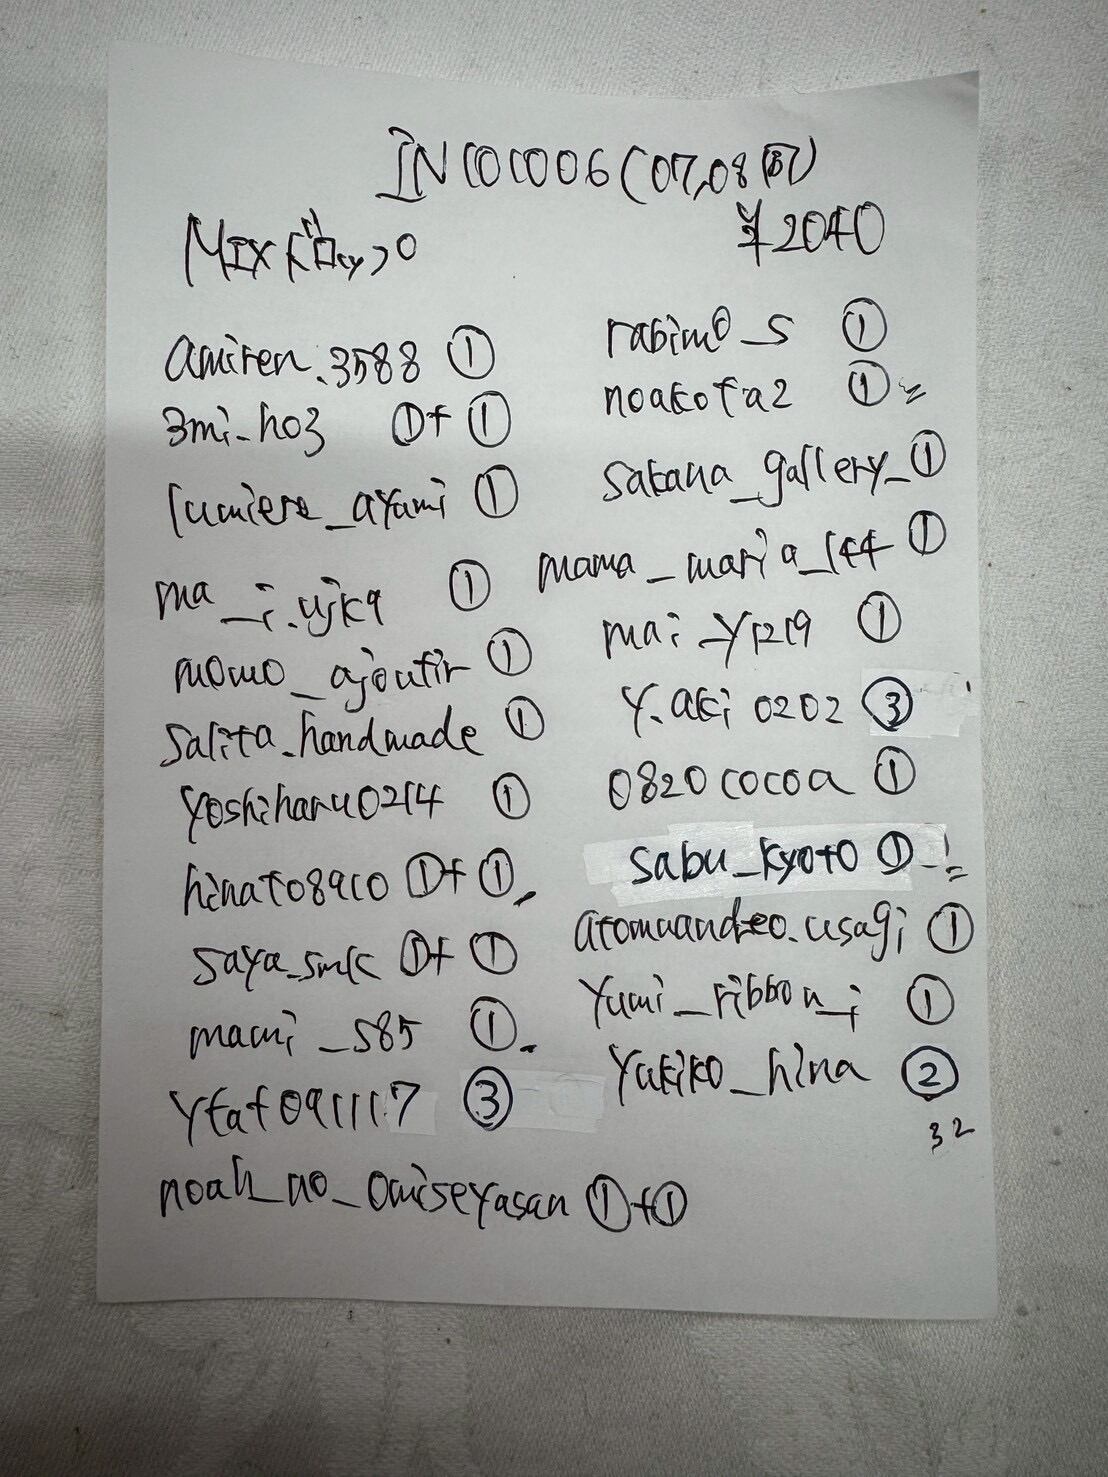 ¥2040
amiren.3588 ①
3mi-ho3 ①+①
lumiere_ayami ①
ma_i.ujk9 ①
momo_ajoutir ①
salita.handmade ①
yoshiharu0214 ①
hinato8910 ①+①
saya_smk ①+①
mami_s85 ①
ytat091117 ③
noah_no_omiseyasan ①+①
rabimo_s ①
noakota2 ①
sakana_gallery_ ①
mama_maria_144 ①
mai_y1219 ①
y.aki0202 ③
0820cocoa ①
sabu_kyoto ①
atomuandleo.usagi ①
yumi_ribbon_j ①
yukiko_hina ②
32